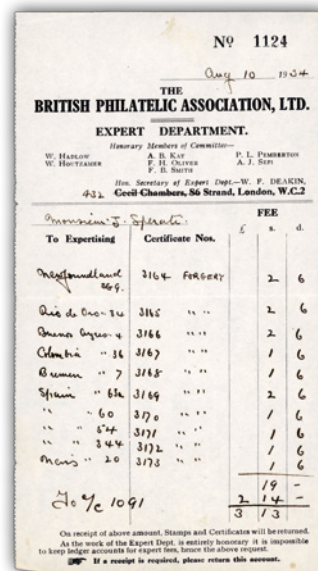 Nº 1124
Aug 10 1934
THE
BRITISH PHILATELIC ASSOCIATION, LTD.
EXPERT DEPARTMENT.
Honorary Members of Committee—
W. HADLOW A. B. KAY P. L. PEMBERTON
W. HOUTZAMER F. H. OLIVER A. J. SEFI
F. B. SMITH
Hon. Secretary of Expert Dept.—W. F. DEAKIN,
432 Cecil Chambers, 86 Strand, London, W.C.2
Monsieur J. Sperati
FEE
To Expertising Certificate Nos. £ s. d.
Newfoundland 3164 FORGERY 2 6
Rio de Oro 34 3165 " " 2 6
Buenos Ayres 4 3166 " " 2 6
Colombia " 36 3167 " " 1 6
Bremen " 7 3168 " " 1 6
Spain " 3169 " " 2 6
" " 60 3170 " " 1 6
" " 54 3171 " " 1 6
" " 344 3172 " " 1 6
" 20 3173 " " 1 6
19 -
To a/c 1091 2 14 -
3 13
On receipt of above amount, Stamps and Certificates will be returned.
As the work of the Expert Dept. is entirely honorary it is impossible
to keep ledger accounts for expert fees, hence the above request.
☛ If a receipt is required, please return this account.